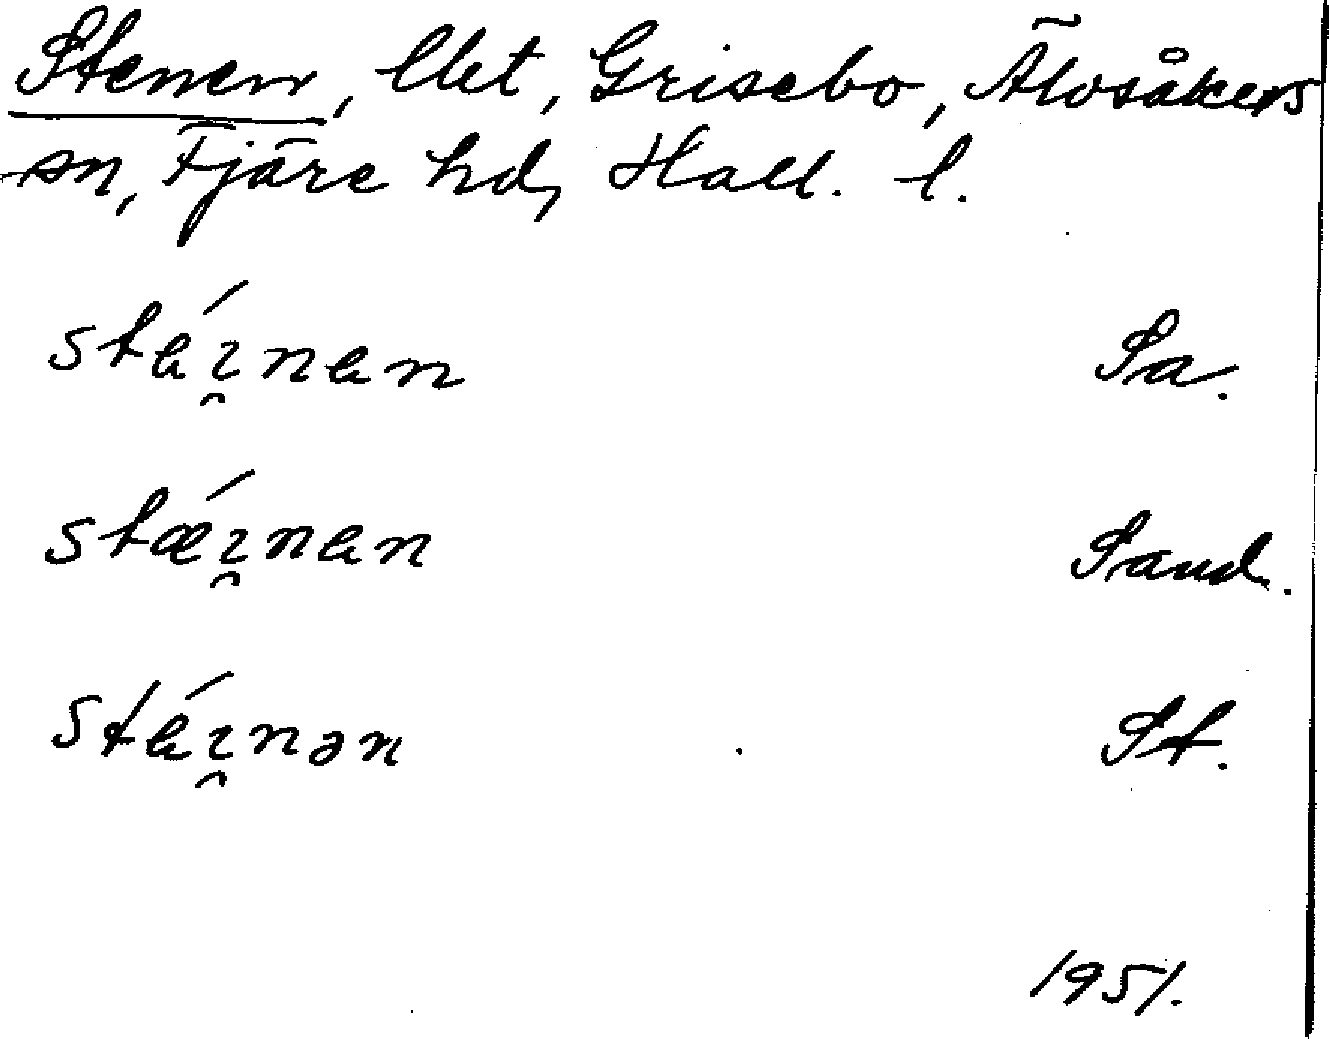 Stenen, lht, Grisebo, Älvsåkers
sn, Fjäre hd, Hall. l.
stéɩ̯nen Sa.
stǽɩ̯nen Sand.
stéɩ̯nən St.
1951.